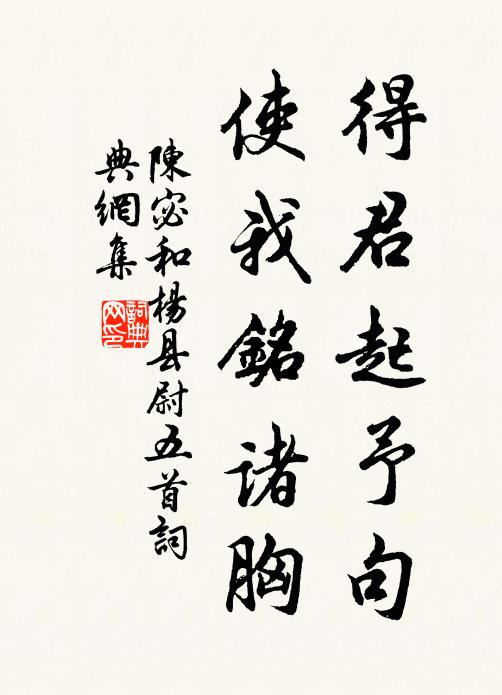 得君起予句
使我銘諸胸
陳宓和楊县尉五首詞
典網集
詞典网印